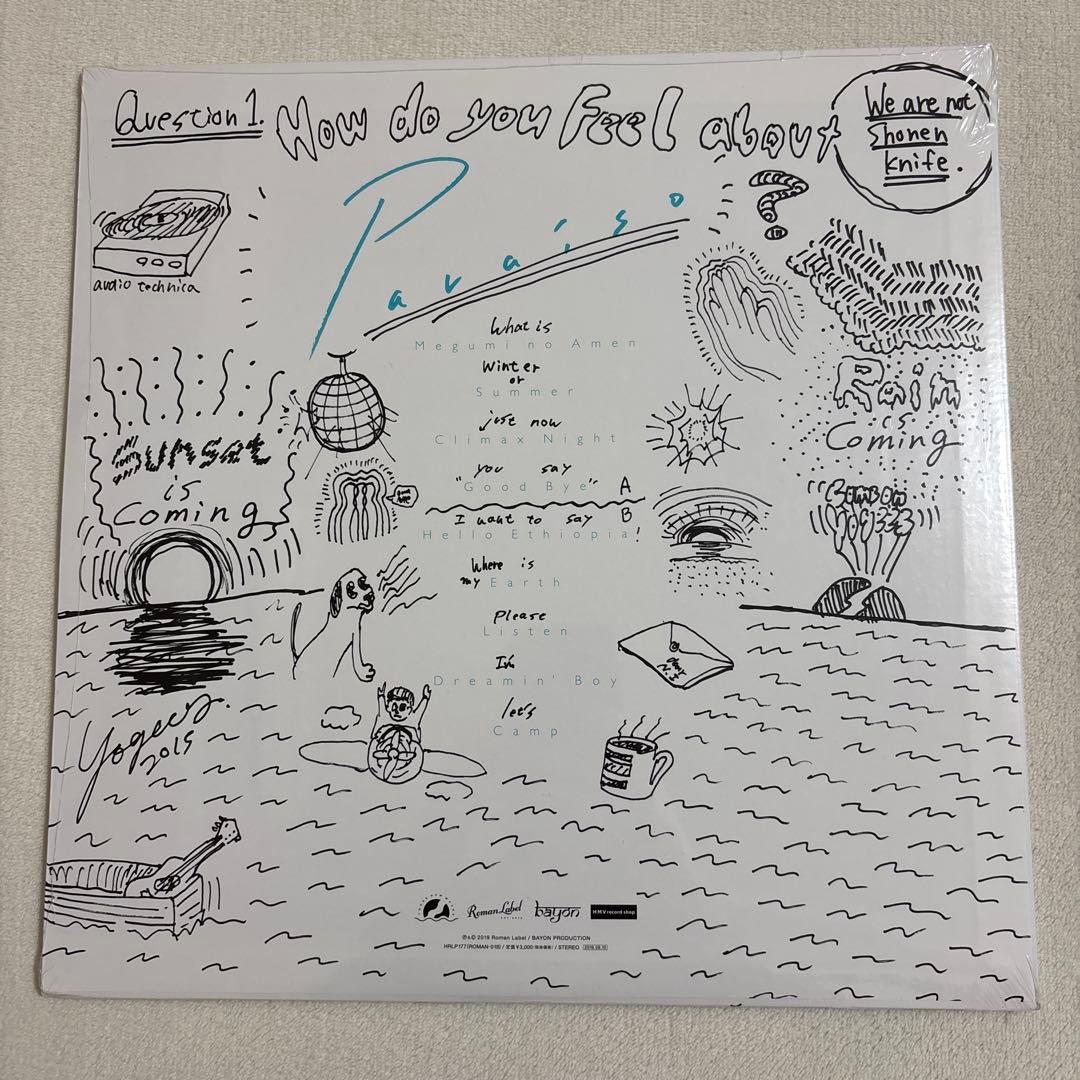 Question 1.
How do you Feel about
Paraiso
?
We are not
Shonen
knife.
audio technica
What is
Megumi no Amen
Winter
or
Summer
just now
Climax Night
you say
"Good Bye"
A
B
I want to say
Hello Ethiopia!
Where is
my Earth
Please
Listen
I'm
Dreamin' Boy
let's
Camp
sunset
is
Coming
Rain
is
Coming
Yogees.
2015
Roman Label
bayon
HMV record shop
℗&© 2019 Roman Label / BAYON PRODUCTION
HRLP177(ROMAN-018) / 定価¥3,000 / STEREO